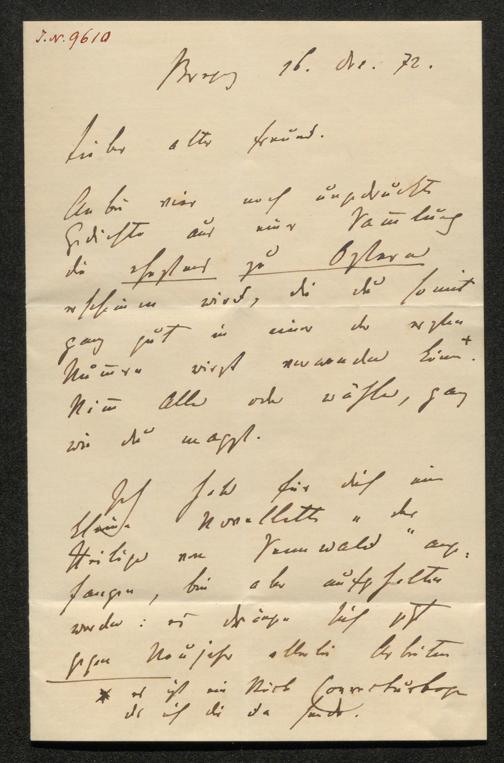 J.N. 9610
16. Dec. 72.
Lieber alter Freund.
Anbei vier noch ungedruckte
Gedichte aus einer Sammlung
die zu Ostern
erscheinen wird, die du somit
ganz gut in einer der ersten
Nummern wirst verwenden kannst.
Nim̅ alle oder wähle, ganz
wie du magst.
Ich habe für dich eine
kleine Novellette „ der
Heilige vom “ ange-
fangen, bin aber aufgehalten
worden: es drängen sich jetzt
gegen Neujahr allerlei Arbeiten
* es ist ein Stück Correcturbogen
den ich dir da sende.